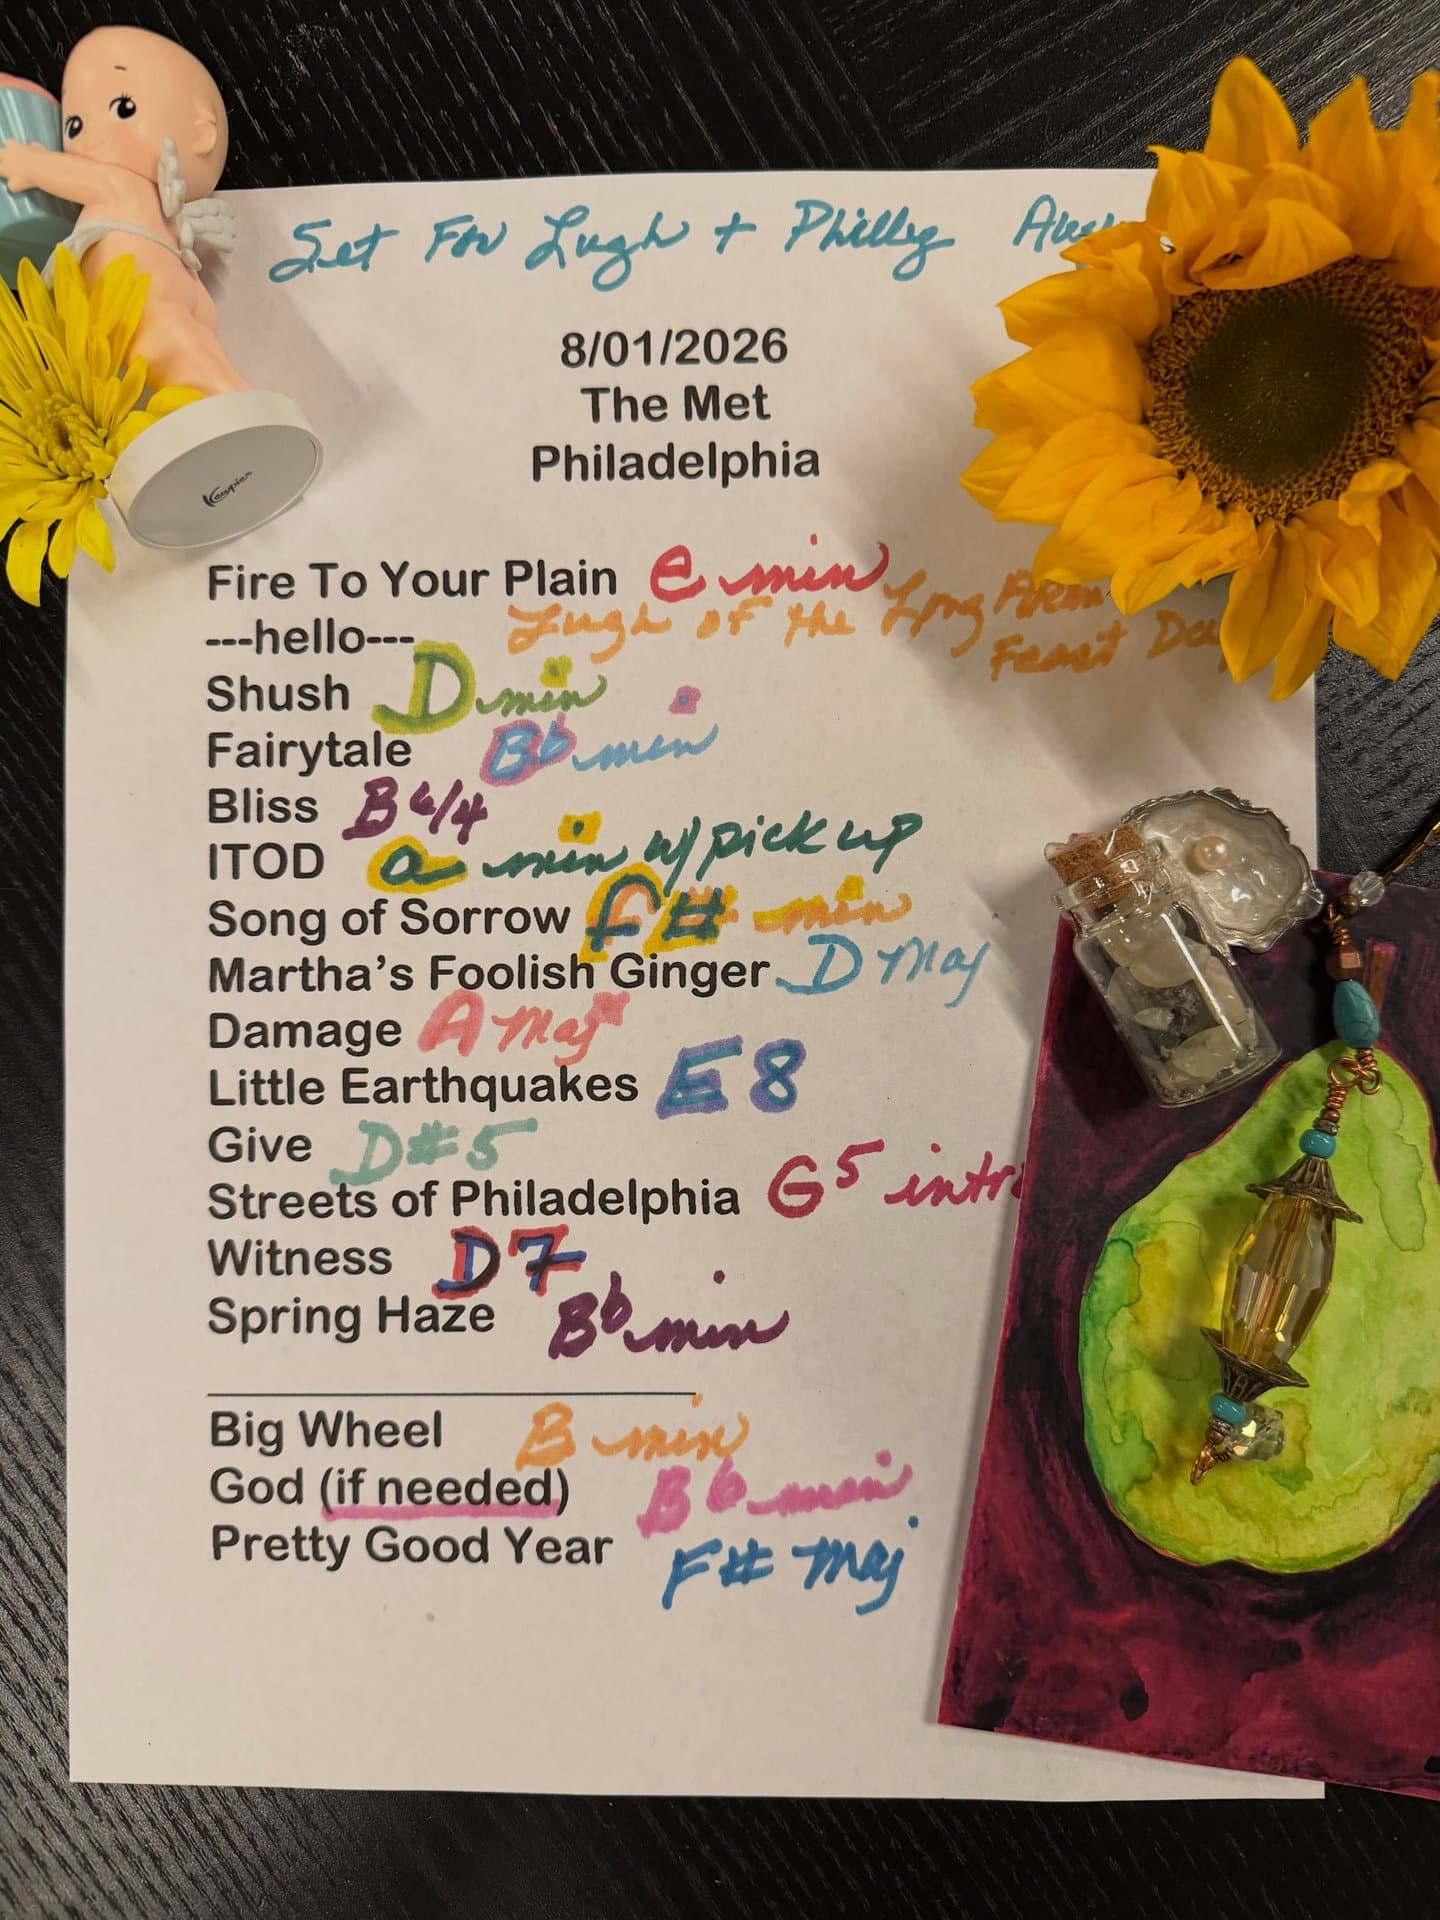 Set For Lugh + Philly
8/01/2026
The Met
Philadelphia
Kewpie
Fire To Your Plain e min
---hello--- Lugh of the Long
Feast
Shush D min
Fairytale Bb min
Bliss B 6/4
ITOD a min w/ pick up
Song of Sorrow F# min
Martha's Foolish Ginger D Maj
Damage A Maj
Little Earthquakes E 8
Give D#5
Streets of Philadelphia G5
Witness D7
Spring Haze Bb min
Big Wheel B min
God (if needed) Bb min
Pretty Good Year F# Maj